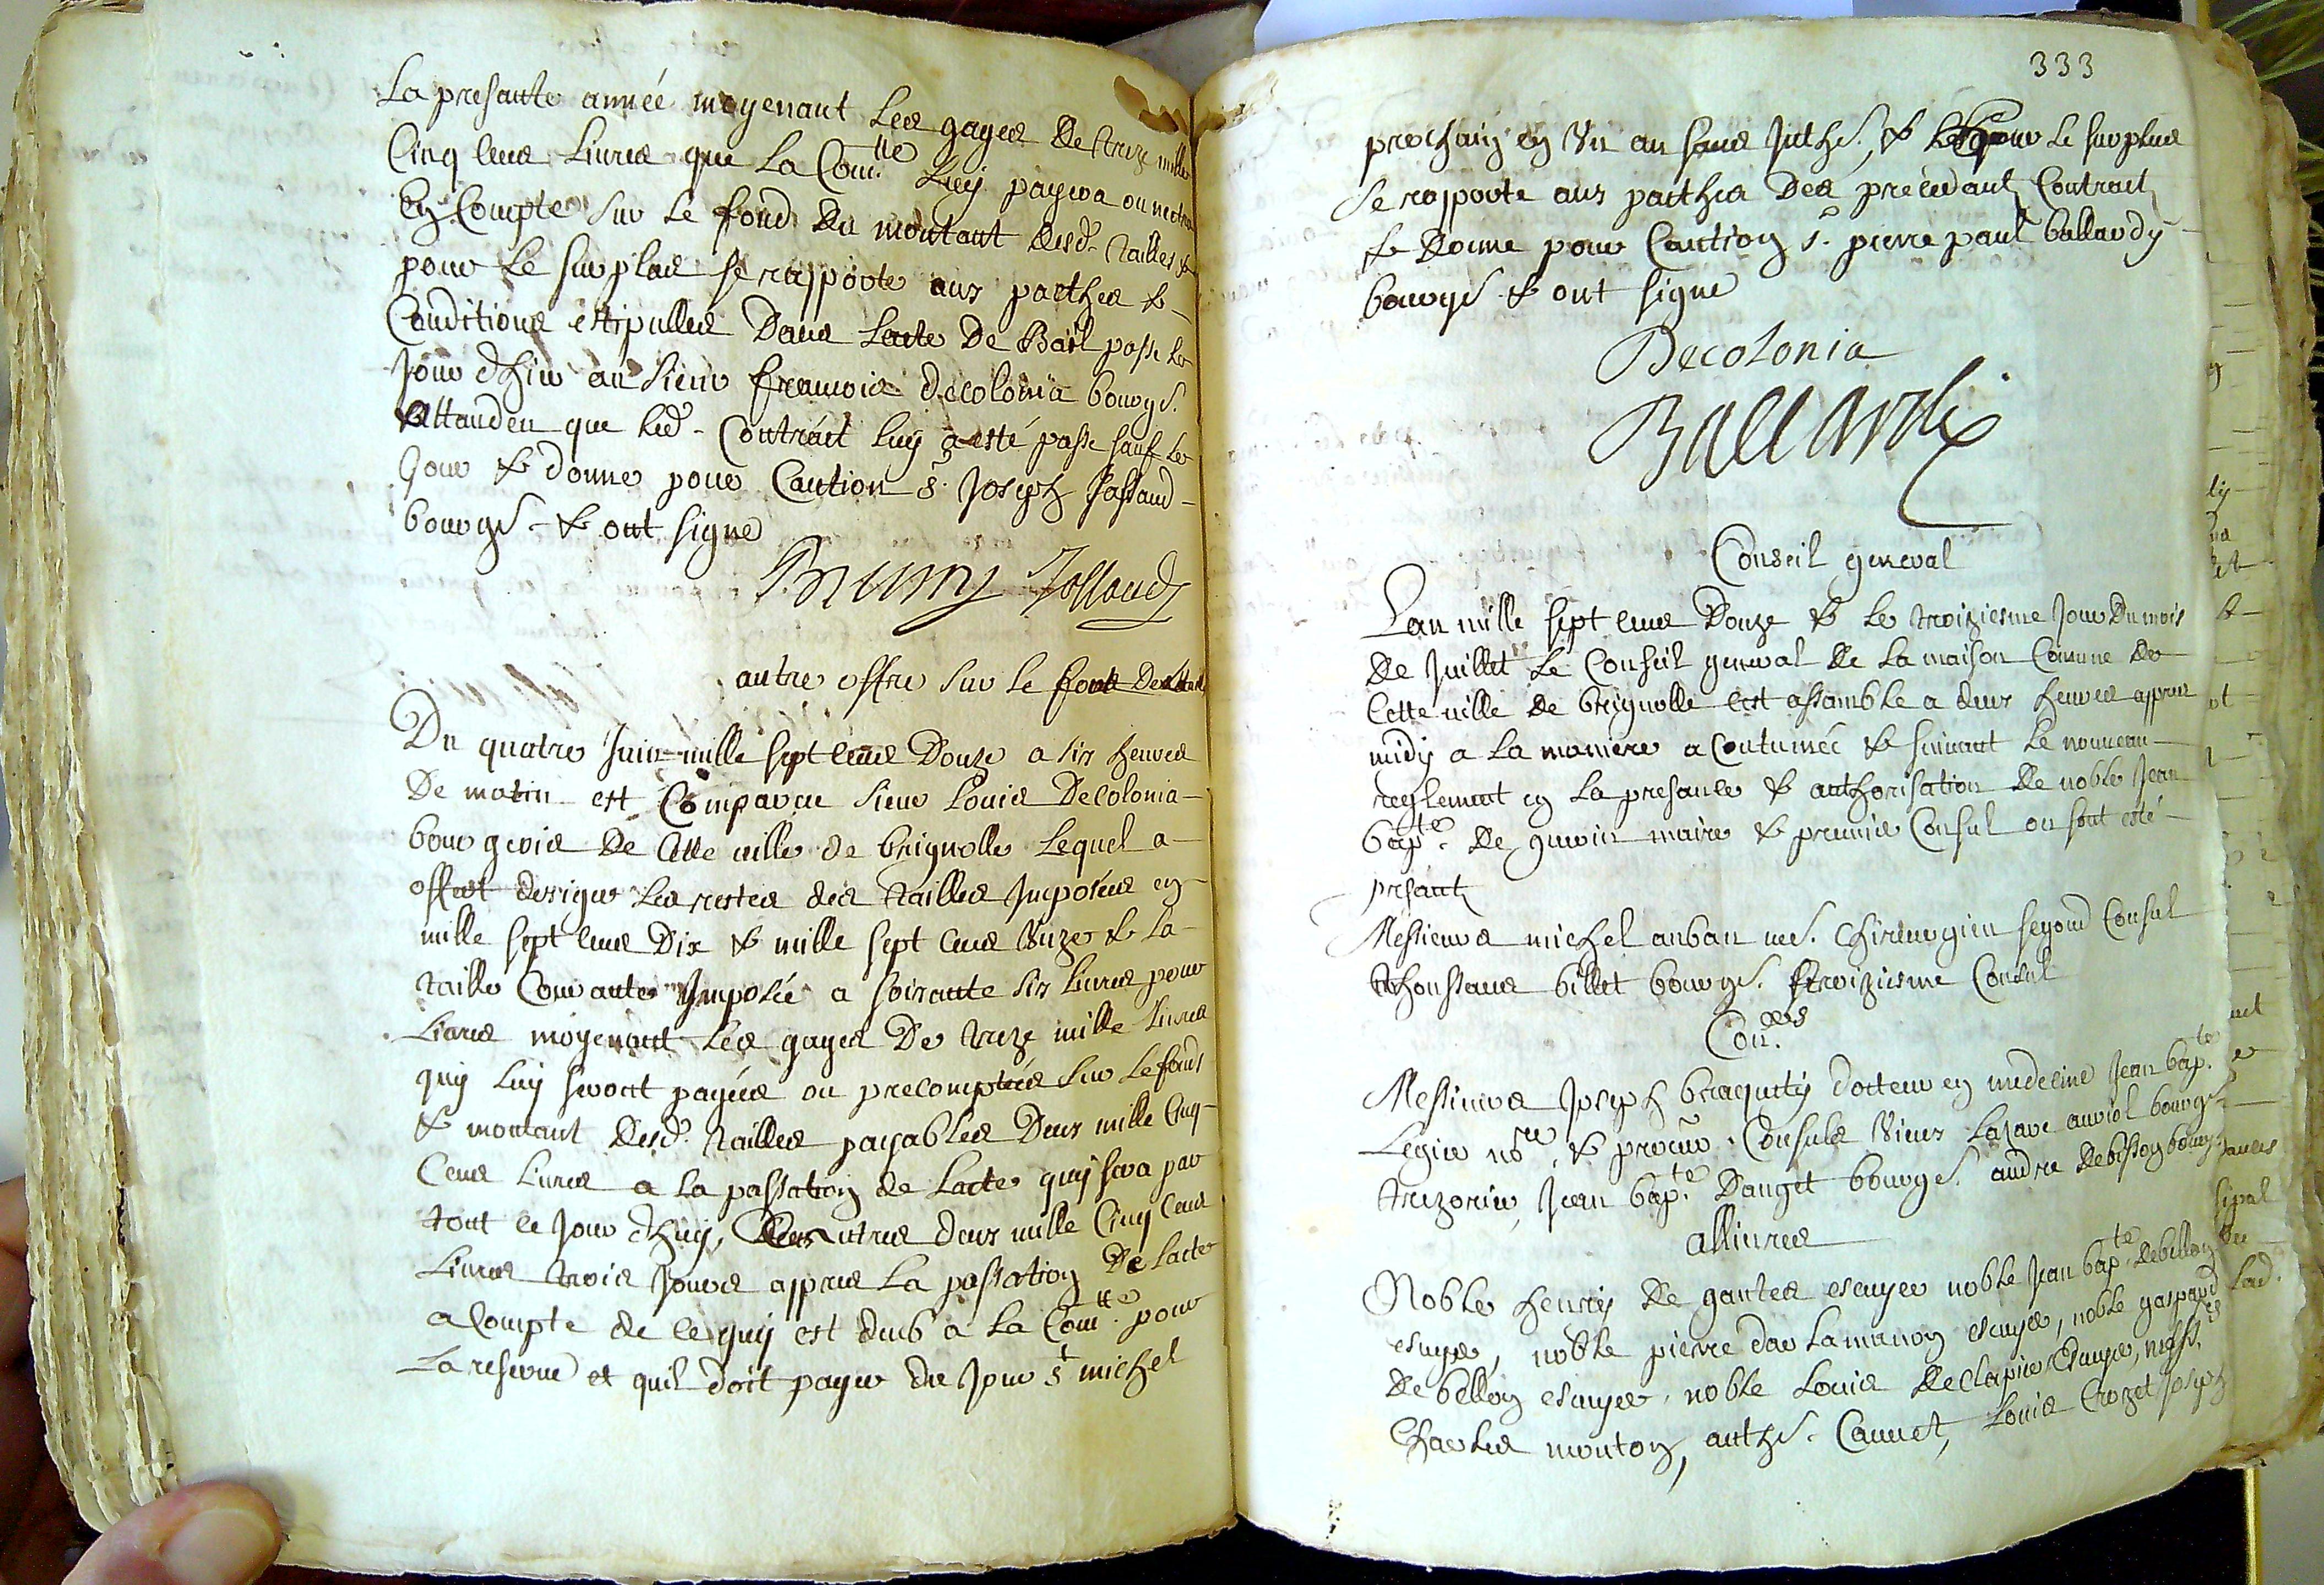 La presante année moyenant les gages de treze mille
Cinq cens Livres que la Com.tte Luy payera ou metra
En Compte sur le fond du montant desd. tailles &
pour le surplus se rapporte aux pacthes &
Conditions estipullees Dans Lacte de Bail passe le
jour dhier au sieur francois decolonia bourgs.
Attandeu que led. Contract luy a esté passe sauf le
jour & donne pour Caution s. Joseph Jassaud
bourgs. & ont signe
Bruny Jossaud
autre offre sur le font des tailles
Du quatre Juin mille sept cens Douze a six heures
De matin est Comparu sieur Louis Decolonia
bourgeois de Cette ville de brignolle Lequel a
offert desiger Les restes des tailles Imposées en
mille sept cens Dix & mille sept cens Unze & la
taille Courante Imposée a soixante six Livres pour
Livres moyenant Les gages De treze mille Livres
quy Luy seront payées ou precomptées sur Le fonds
& montant desd. tailles payables Deux mille Cinq
Cens Livres a la passation de Lacte quy sera par
tout ce jour dhuy, autres deux mille Cinq Cens
Livres trois jours appres La passation De Lacte
a Compte de ce quy est deub a La Com.tte pour
La reserve et quil doit payer du jour st michel
333
prochain en Un an sans Inths. & pour le surplus
se rapporte aux pacthes des precedant Contract
& Donne pour Caution s. pierre paul ballardy
bourgs. & ont signe
Decolonia
Ballardi
Conseil general
Lan mille sept cens Douze & le troiziesme jour Du mois
de Juillet Le Conseil general de La maison Comune de
Cette ville de brignolle cest assamble a deux heures appres
midy a la maniere acoutumée & suivant le nouveau
reglement en La presance & authorisation de noble Jean
bap.te de guerin maire & premier Consul ou sont esté
presant
Messieurs michel auban me. Chirurgien segond Consul
thoussans billet bourgs. troiziesme Consul
Con.ers
Messieurs Joseph braquety docteur en medecine Jean bap.te
Legier no.re & procur. Consuls Vieux Lazare auriol bourgs.
trezorier, Jean bap.te Dauget bourgs. andre debisson bourgs.
allivres
Noble henry de gantes escuyer noble Jean bap.te debellon
escuyer, noble pierre dar Lamanon escuyer, noble gaspard
De bellon escuyer, noble Louis Declapiers Escuyer, mess.rs
Charles mouton, anths. Cannet, Louis Crozet Joseph